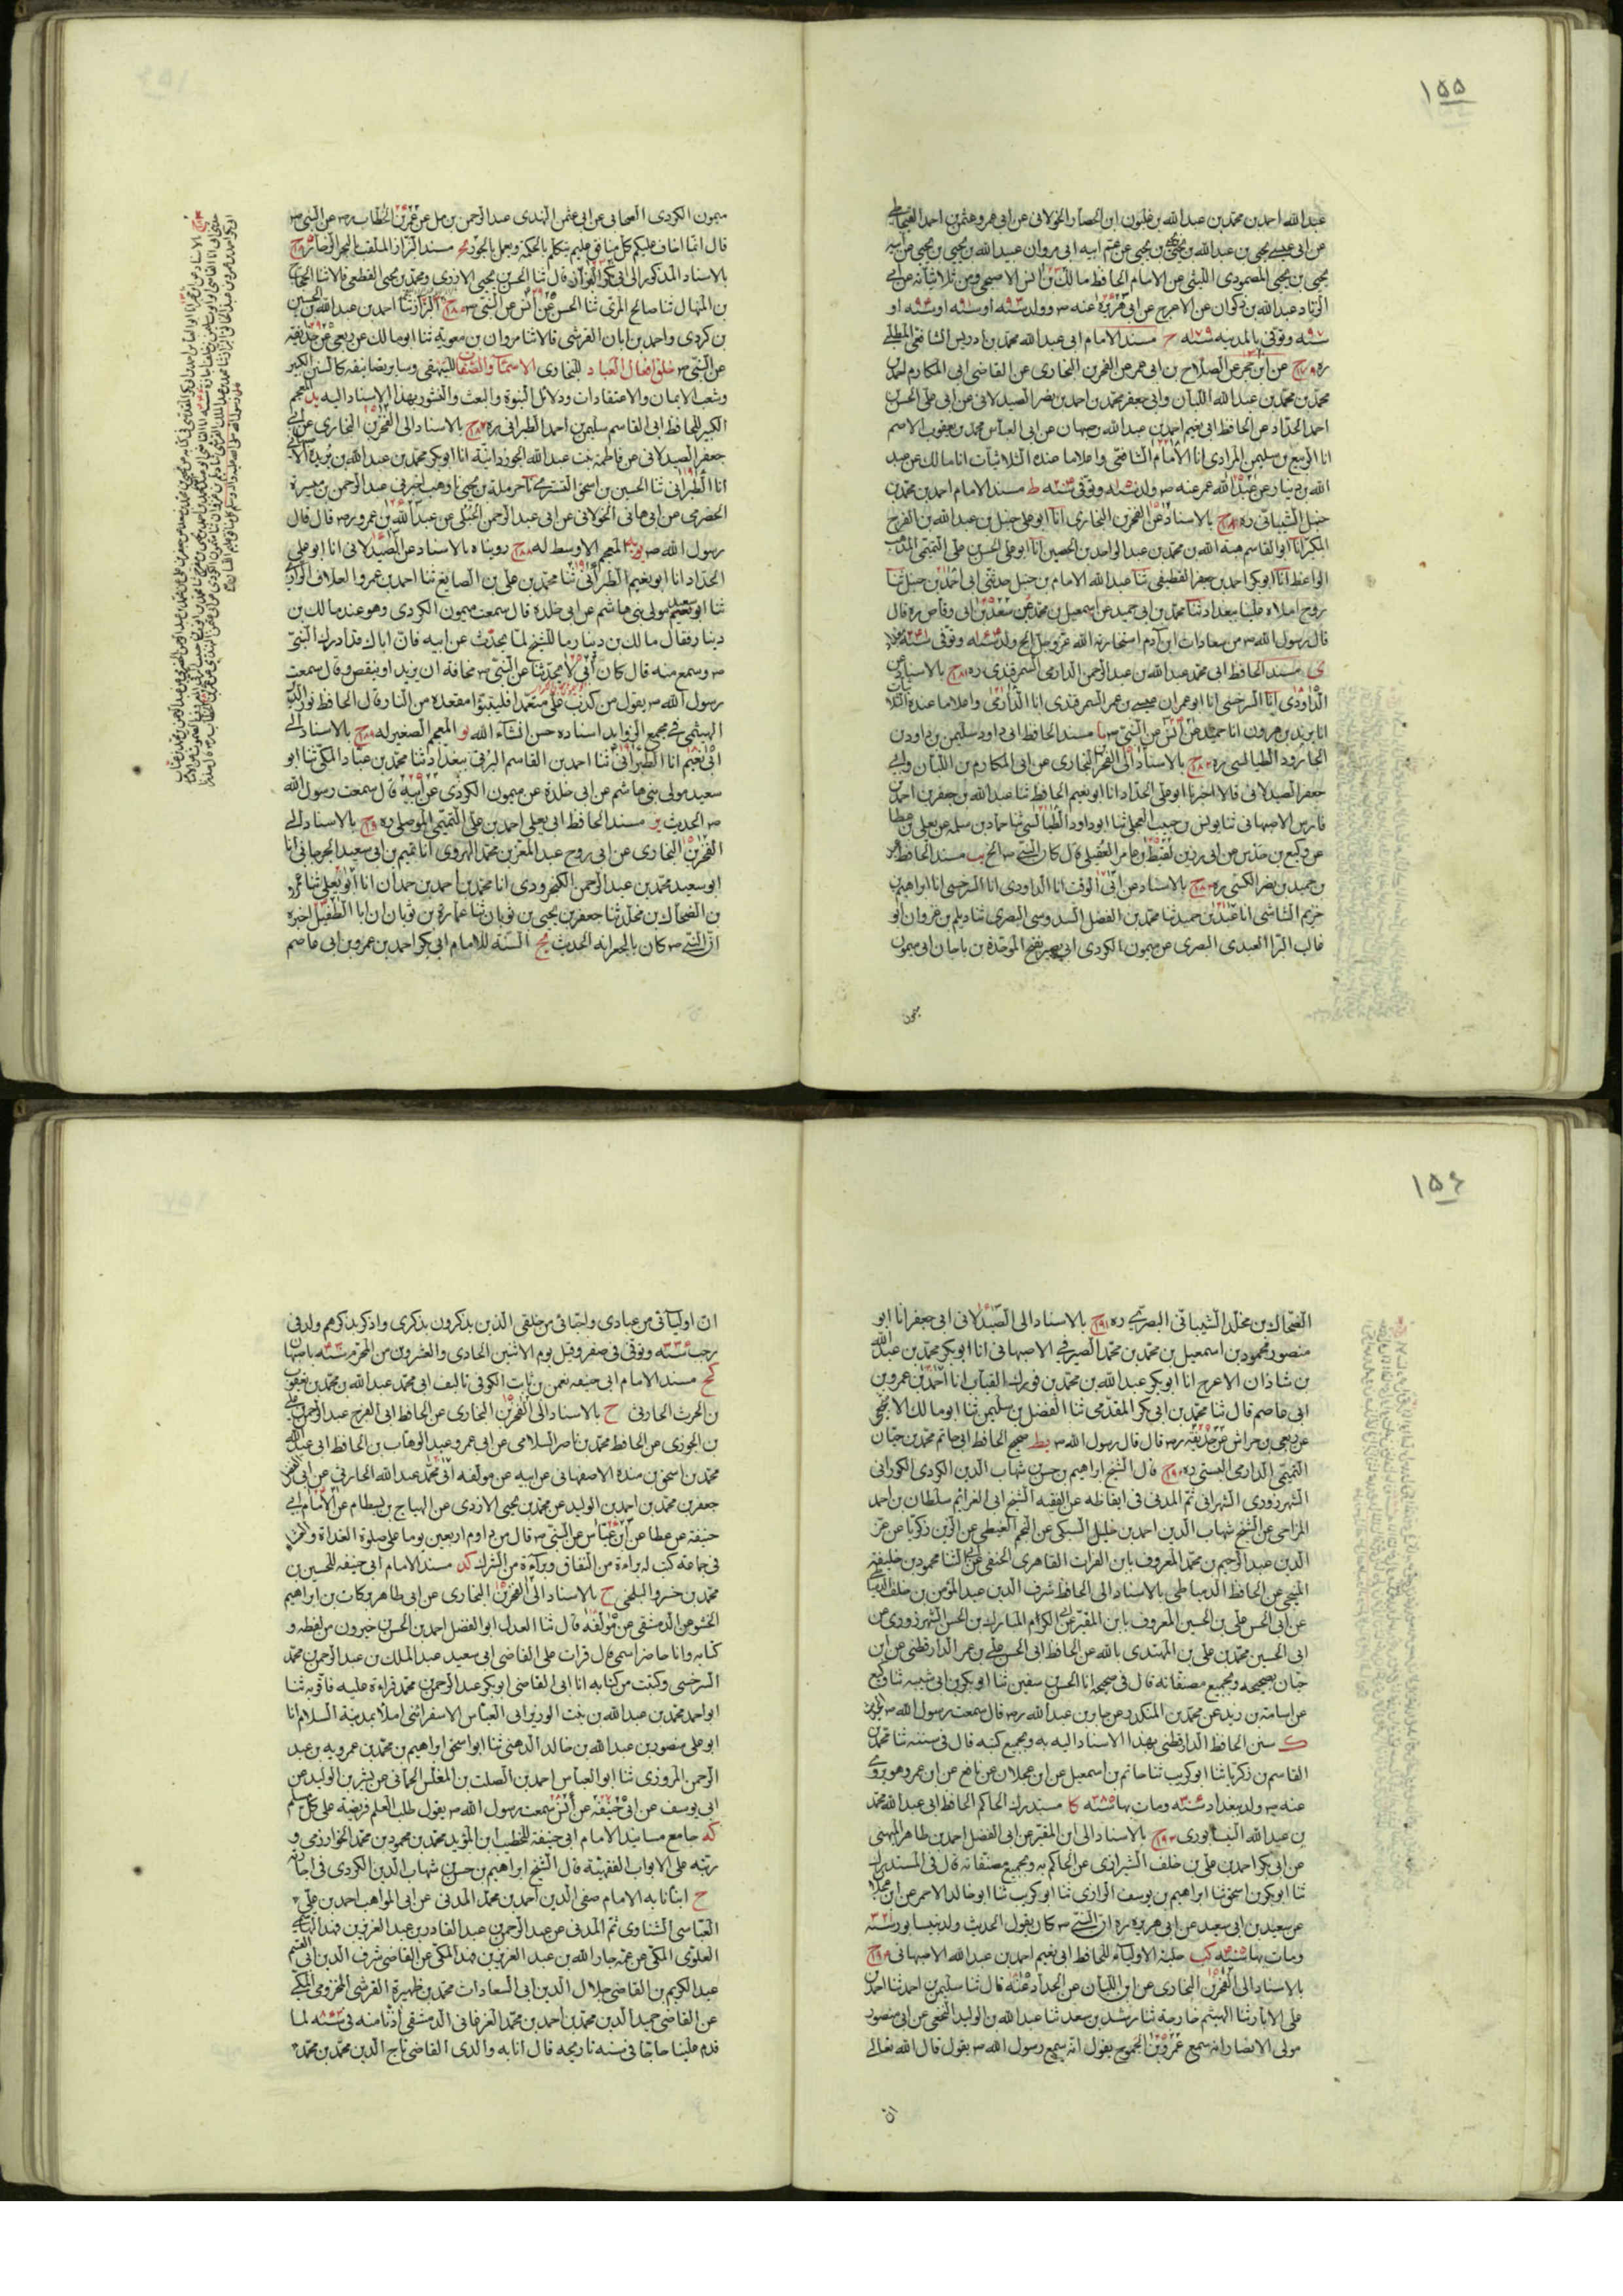 ١٥٥
عبد الله احمد بن محمد بن عبد الله بن غلبون ابن الحصار الخولانى عن ابى عمرو عثمن بن احمد القيجاطى
عن ابى عيسى يحيى بن عبد الله بن يحيى بن يحيى عن عم ابيه ابى مروان عبيد الله بن يحيى بن يحيى عن ابيه
يحيى بن يحيى المصمودى الليثى عن الامام الحافظ مالك بن انس الاصبحى ومن ثلاثياته عن ابى
الزناد عبد الله بن ذكوان عن الاعرج عن ابى هريرة عنه ص وولد
وتوفى بالمدينه سنه ح مسند الامام ابى عبد الله محمد بن ادريس الشافعى المطلبى
ره عن ابن حجر عن الصلاح بن ابى عمر عن الفخر بن البخارى عن القاضى ابى المكارم احمد بن
محمد بن محمد بن عبد الله اللبان وابى جعفر محمد بن احمد بن نصر الصيدلانى عن ابى على الحسن بن
احمد الحداد عن الحافظ ابى نعيم احمد بن عبد الله بن صبهان عن ابى العباس محمد بن يعقوب الاصم
انا الربيع بن سليمن المرادى انا الامام الشافعى واعلاما عنده الثلاثيات انا مالك عن عبد
الله بن دينار عن عبد الله عمر عنه ص ولد سنه وتوفى سنه ط مسند الامام احمد بن محمد بن
حنبل الشيبانى ره بالاسناد عن الفخر بن البخارى انا ابو على حنبل بن عبد الله بن الفرج
المكبر انا ابو القاسم هبة الله بن محمد بن عبد الواحد بن الحصين انا ابو على الحسن بن على التميمى المذهب
الواعظ انا ابو بكر احمد بن جعفر القطيعى ثنا عبد الله الامام بن حنبل حدثنى ابى احمد بن حنبل ثنا
روح املاه علينا ببغداد ثنا محمد بن ابى حميد عن اسمعيل بن محمد عن سعد بن ابى وقاص ره قال
قال رسول الله ص من سعادات ابن آدم استخارته الله عز وجل الخ ولد سنه وتوفى سنه
ى مسند الحافظ ابى محمد عبد الله بن عبد الرحمن الدارمى السمرقندى ره بالاسناد عن
الداودى انا السرخسى انا ابو عمران عيسى بن عمر السمرقندى انا الدارمى واعلاما عنده الثلاثيات
انا يزيد بن هرون انا حميد عن انس عن النبى ص يا مسند الحافظ ابى داود سليمن بن داود بن
الجارود الطيالسى ره بالاسناد الى الفخر البخارى عن ابى المكارم بن اللبان وابى
جعفر الصيدلانى قالا اخبرنا ابو على الحداد انا ابو نعيم الحافظ ثنا عبد الله بن جعفر بن احمد بن
فارس الاصبهانى ثنا يونس بن حبيب العجلى ثنا ابو داود الطيالسى ثنا حماد بن سلمه عن يعلى بن عطا
عن وكيع بن حدس عن ابى رزين لقيط بن عامر العقيلى قال كان النبى ص الخ يب مسند الحافظ
بن حميد بن نصر الكسى ره بالاسناد عن ابى الوقت انا الداودى انا السرخسى انا ابراهيم بن
خزيم الشاشى انا عبد بن حميد ثنا محمد بن الفضل السدوسى البصرى ثنا ديلم بن غزوان ابو
غالب البرا العبدى البصرى عن ميمون الكردى ابى بصير بفتح الموحدة بن جابان ابى ميمون
ميمون
ميمون الكردى الصحابى عن ابى عثمن النهدى عبد الرحمن بن مل عن عمر بن الخطاب رض عن النبى ص
قال انما اخاف عليكم كل منافق عليم يتكلم بالحكمة ويعمل بالجور مسند البزاز الملقب بالبحر الزخار
بالاسناد المذكور قال ثنا الحسن بن يحيى الازدى ومحمد بن يحيى القطعى قالا ثنا الحجاج
بن المنهال ثنا صالح المرى ثنا الحسن عن انس عن النبى ص البزاز ثنا احمد بن عبد الله بن الحسين
بن كردى واحمد بن ابان القرشى قالا ثنا مروان بن معوية ثنا ابو مالك عن ربعى عن حذيفة
عن النبى ص خلق افعال العباد للبخارى الاسماء والصفات للبيهقى وساير تصانيفه كالسنن الكبير
وشعب الايمان والاعتقادات ودلائل النبوة والبعث والنشور بهذا الاسناد اليه يد المعجم
الكبير للحافظ ابى القاسم سليمن بن احمد الطبرانى ره بالاسناد الى الفخر بن البخارى عن ابى
جعفر الصيدلانى عن فاطمة بنت عبد الله الجوزدانية انا ابو بكر محمد بن عبد الله بن ريده
انا الطبرانى ثنا الحسين بن اسحق التسترى حرملة بن يحيى وهب اخبرنى عبد الرحمن بن ميسرة
الحضرمى عن ابى هانى الخولانى عن ابى عبد الرحمن الحبلى عن عبد الله بن عمرو رض قال قال
رسول الله ص المعجم الاوسط له رويناه بالاسناد عن الصيدلانى انا ابو على
الحداد انا ابو نعيم الطبرانى ثنا محمد بن على بن الصايغ ثنا احمد بن عمرو العلاف الرازى
ثنا ابو سعيد مولى بنى هاشم عن ابى خلدة قال سمعت ميمون الكردى وهو عند مالك بن
دينار فقال مالك بن دينار ما للشيخ لا يحدث عن ابيه فان اباك قد ادرك النبى
ص وسمع منه قال كان ابى لا يحدثنا عن النبى ص مخافة ان يزيد او ينقص وقال سمعت
رسول الله ص يقول من كذب على متعمدا فليتبوا مقعده من النار وقال الحافظ نور الدين
الهيثمى فى مجمع الزوايد اسناده حسن انشاء الله يو المعجم الصغير له بالاسناد الى
ابى نعيم انا الطبرانى ثنا احمد بن القاسم البرقى ببغداد ثنا محمد بن عباد المكى ثنا ابو
سعيد مولى بنى هاشم عن ابى خلدة عن ميمون الكردى عن ابيه قال سمعت رسول الله
ص الحديث يز مسند الحافظ ابى يعلى احمد بن على التميمى الموصلى ره بالاسناد الى
الفخر بن البخارى عن ابى روح عبد المعز بن محمد الهروى انا تميم بن ابى سعيد الجرجانى انا
ابو سعيد محمد بن عبد الرحمن الكنجرودى انا محمد بن احمد بن حمدان انا ابو يعلى ثنا عمرو
بن الضحاك بن مخلد ثنا جعفر بن يحيى بن ثوبان ثنا عمارة بن ثوبان ان ابا الطفيل اخبره
ان النبى ص كان بالجعرانه الحديث يح السنة للامام ابى بكر احمد بن عمرو بن ابى عاصم
١٥٦
الضحاك بن مخلد الشيبانى البصرى ره بالاسناد الى الصيدلانى ابى جعفر انا ابو
منصور محمود بن اسمعيل بن محمد بن محمد الصيرفى الاصبهانى انا ابو بكر محمد بن عبد الله
بن شاذان الاعرج انا ابو بكر عبد الله بن محمد بن فورك القباب انا احمد بن عمرو بن
ابى عاصم قال ثنا محمد بن ابى بكر المقدمى ثنا الفضل بن سليمن ثنا ابو مالك الاشجعى
عن ربعى بن حراش عن حذيفة رض قال قال رسول الله ص يط صحيح الحافظ ابى حاتم محمد بن حبان
التميمى الدارمى البستى ره قال الشيخ ابراهيم بن حسن شهاب الدين الكردى الكورانى
الشهرزورى الشهرانى ثم المدنى فى ايقاظه عن الفقيه الشيخ ابى العزائم سلطان بن احمد
المزاحى عن الشيخ شهاب الدين احمد بن خليل السبكى عن النجم الغيطى عن الزين زكريا عن عز
الدين عبد الرحيم بن محمد المعروف بابن الفرات القاهرى الحنفى عن ابى الثنا محمود بن خليفة
المنبجى عن الحافظ الدمياطى بالاسناد الى الحافظ شرف الدين عبد المؤمن بن خلف الدمياطى
عن ابى الحسن على بن الحسين المعروف بابن المقير عن ابى الكرام المبارك بن الحسن الشهرزورى عن
ابى الحسين محمد بن على بن المهتدى بالله عن الحافظ ابى الحسن على بن عمر الدارقطنى عن ابن
حبان بصحيحه وبجميع مصنفاته قال فى صحيحه انا الحسن بن سفين ثنا ابو بكر بن ابى شيبه ثنا وكيع
عن اسامة بن زيد عن محمد بن المنكدر عن جابر بن عبد الله رض قال سمعت رسول الله ص الحديث
ك سنن الحافظ الدارقطنى بهذا الاسناد اليه به وبجميع كتبه قال فى سننه ثنا محمد بن
القاسم بن زكريا ثنا ابو كريب ثنا حاتم بن اسمعيل عن ابن عجلان عن نافع عن ابن عمر وهو يروى
عنه ص ولد ببغداد سنه ومات بها سنه كا مستدرك الحاكم الحافظ ابى عبد الله محمد
بن عبد الله النيسابورى بالاسناد الى ابن المقير عن ابى الفضل احمد بن طاهر الميهنى
عن ابى بكر احمد بن على بن خلف الشيرازى عن الحاكم به وبجميع مصنفاته قال فى المستدرك
ثنا ابو بكر بن اسحق ثنا ابراهيم بن يوسف الرازى ثنا ابو كريب ثنا ابو خالد الاحمر عن ابن عجلان
عن سعيد بن ابى سعيد عن ابى هريره ره ان النبى ص كان يقول الحديث ولد بنيسابور سنه
ومات بها سنه كب حلية الاولياء للحافظ ابى نعيم احمد بن عبد الله الاصبهانى
بالاسناد الى الفخر بن البخارى عن ابن اللبان عن الحداد عنه قال ثنا سليمن بن احمد ثنا احمد بن
على الابار ثنا الهيثم خارجة ثنا رشد بن سعد ثنا عبد الله بن الوليد التجيبى عن ابى منصور
مولى الانصار انه سمع عمرو بن الجموح يقول انه سمع رسول الله ص يقول قال الله تعالى
ان
ان اوليائى من عبادى واحبائى من خلقى الذين يذكرون بذكرى واذكر بذكرهم ولد فى
رجب سنه وتوفى فى صفر وقيل يوم الاثنين الحادى والعشرين من المحرم سنه باصبهان
كج مسند الامام ابى حنيفه نعمن بن ثابت الكوفى تاليف ابى محمد عبد الله بن محمد بن يعقوب
بن الحرث الحارثى ح بالاسناد الى الفخر بن البخارى عن الحافظ ابى الفرج عبد الرحمن بن على
بن الجوزى عن الحافظ محمد بن ناصر السلامى عن ابى عمرو عبد الوهاب بن الحافظ ابى عبد الله
محمد بن اسحق بن منده الاصفهانى عن ابيه عن مولفه ابى محمد عبد الله الحارثى عن ابى الفضل
جعفر بن محمد بن احمد بن الوليد عن محمد بن يحيى الازدى عن الهياج بن بسطام عن الامام ابى
حنيفة عن عطا عن ابن عباس عن النبى ص قال من داوم اربعين يوما على صلوة الغداة والعشاء
فى جماعة كتب له براءة من النفاق وبراءة من الشرك كد مسند الامام ابى حنيفه للحسين بن
محمد بن خسرو البلخى ح بالاسناد الى الفخر بن البخارى عن ابى طاهر بركات بن ابراهيم
الخشوعى الدمشقى عن مؤلفه قال ثنا العدل ابو الفضل احمد بن الحسن بن خيرون من لفظه و
كتابه وانا حاضر اسمع قال قرات على القاضى ابى سعيد عبد الملك بن عبد الرحمن بن محمد
السرخسى وكتبت من كتابه انا ابى القاضى ابو بكر عبد الرحمن بن محمد قراءة عليه فاقر به ثنا
ابو احمد محمد بن عبد الله بن بنت الوزير ابى العباس الاسفرائنى املا بمدينة السلام انا
ابو على منصور بن عبد الله بن خالد الذهبى ثنا ابو اسحق ابراهيم بن محمد بن عمرويه بن عبد
الرحمن المروزى ثنا ابو العباس احمد بن الصلت بن المغلس الحمانى عن بشر بن الوليد عن
ابى يوسف عن ابى حنيفه عن انس سمعت رسول الله ص يقول طلب العلم فريضة على كل مسلم
كه جامع مسانيد الامام ابى حنيفة للخطيب ابن المؤيد محمد بن محمود بن محمد الخوارزمى و
رتبه على الابواب الفقهية قال الشيخ ابراهيم بن حسن شهاب الدين الكردى فى اجازته
ح انبانا به الامام صفى الدين احمد بن محمد المدنى عن ابى المواهب احمد بن على
العباسى الشناوى ثم المدنى عن عبد الرحمن بن عبد القادر بن عبد العزيز بن فهد الهاشمى
العلوى المكى عن عمه جار الله بن عبد العزيز بن فهد المكى عن القاضى شرف الدين ابى القسم
عبد الكريم بن القاضى جلال الدين ابى السعادات محمد بن ظهيرة القرشى المخزومى المكى
عن القاضى حميد الدين محمد بن احمد بن محمد الفرغانى الدمشقى اذنا منه فى سنه لما
قدم علينا حاجا فى سنه تاريخه قال انا به والدى القاضى تاج الدين محمد بن محمد